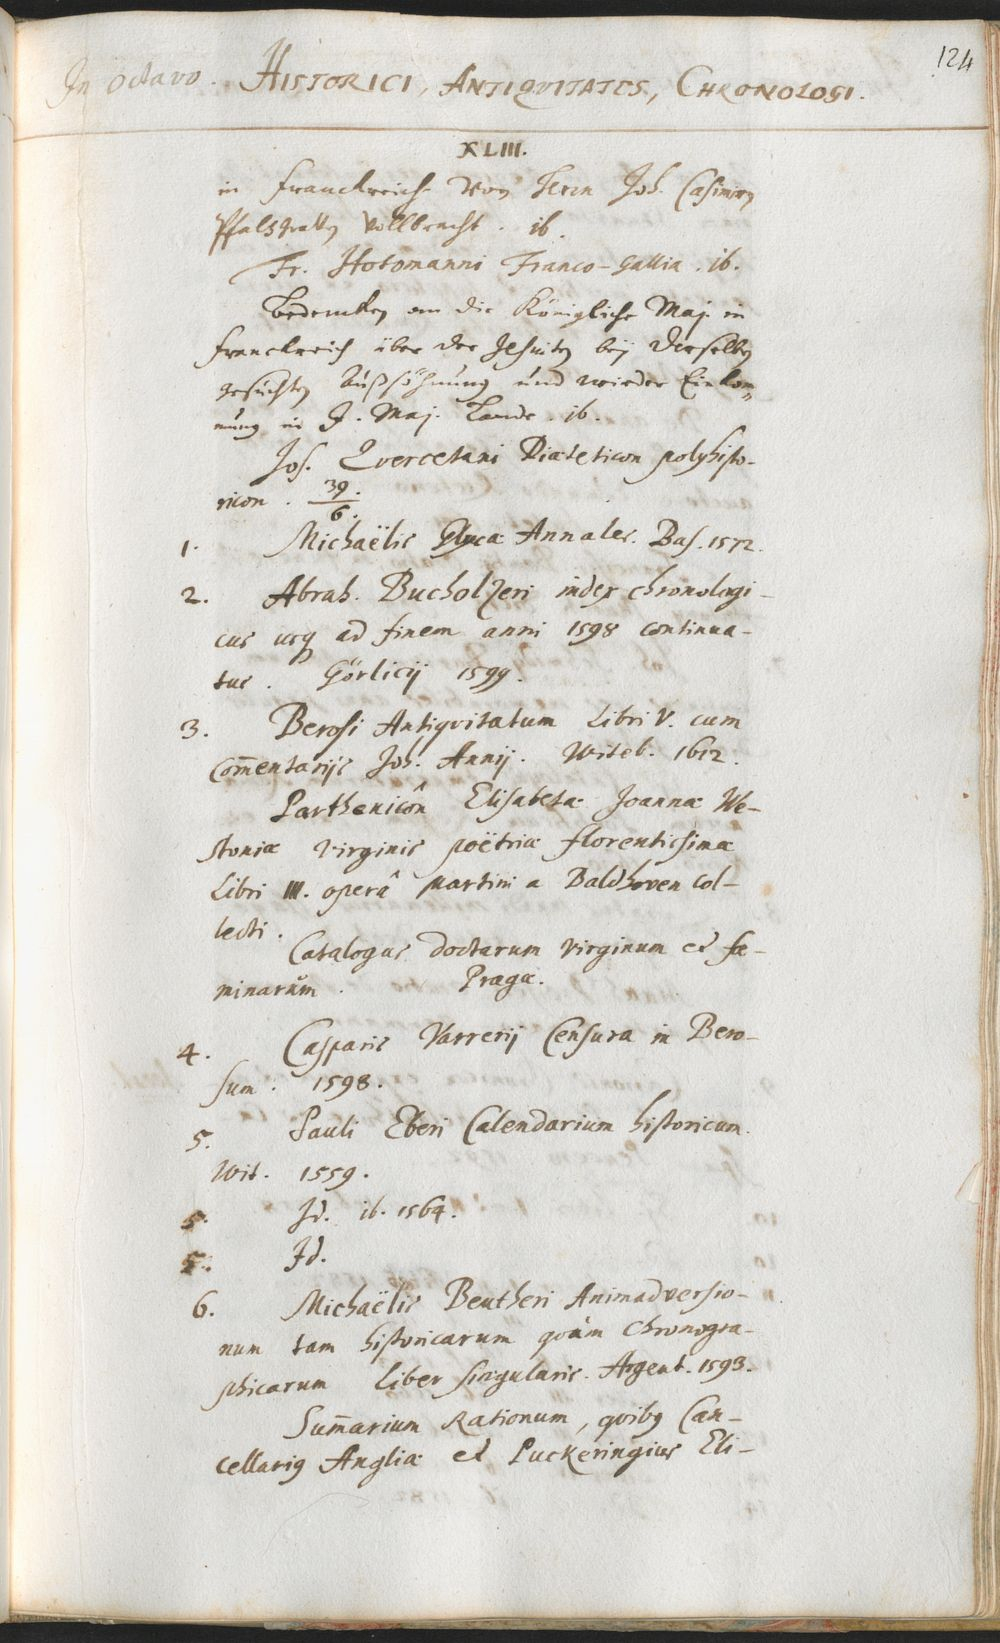 124
In Octavo. HISTORICI, ANTIQVITATES, CHRONOLOGI.
XLIII.
in Franckreich von Herrn Joh. Casimirn
Pfalzgraffen vollbracht. ib.
Fr. Hotomanni Franco-Gallia. ib.
Bedencken an die Königliche Maj. in
Franckreich über der Jesuiten beÿ Derselben
gesuchten Außsöhnung und wieder Einkom=
mung in J. Maj. Lande. ib.
Jos. Qvercetani Diæteticon polyhisto-
ricon. 39./6.
1. Michaëlis Glycæ Annales. Bas. 1572.
2. Abrah. Bucholzeri index chronologi-
cus usq ad finem anni 1598 continua-
tus. Görlicij 1599.
3. Berosi Antiqvitatum Libri V. cum
Com̄entarijs Joh. Annij. Witeb. 1612.
Parthenicôn Elisabetæ Joannæ We-
stoniæ virginis poëtriæ florentissimæ
Libri III. operâ Martini a Baldhoven col-
lecti.
Catalogus doctarum virginum et fæ-
minarum. Pragæ.
4. Casparis Varrerij Censura in Bero-
sum. 1598.
5. Pauli Eberi Calendarium historicum.
Wit. 1559.
5. Id. ib. 1564.
5. Id.
6. Michaëlis Beutheri Animadversio-
num tam historicarum qvàm chronogra-
phicarum Liber singularis. Argent. 1593.
Sum̄arium Rationum, qvibq Can-
cellariq Angliæ et Puckeringius Eli-